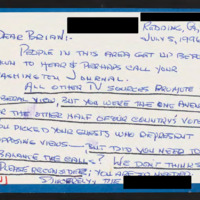 REDDING, CA,
DEAR BRIAN: JULY 5, 1996
PEOPLE IN THIS AREA GET UP BEFO
WN TO HEAR & PERHAPS CALL YOUR
ASHINGTON JOURNAL.
ALL OTHER TV SOURCES PROMOTE
BERAL VIEW, BUT YOU WERE THE ONE AVENU
OR THE OTHER HALF OF OUR COUNTRY'S VOTE
YOU PICKED YOUR GUESTS WHO REPRESENT
OPPOSING VIEWS — BUT DID YOU NEED TO
BALANCE THE CALLS? WE DON'T THINK S
PLEASE RECONSIDER; YOU ARE SO NEEDED
SINCERELY, THE